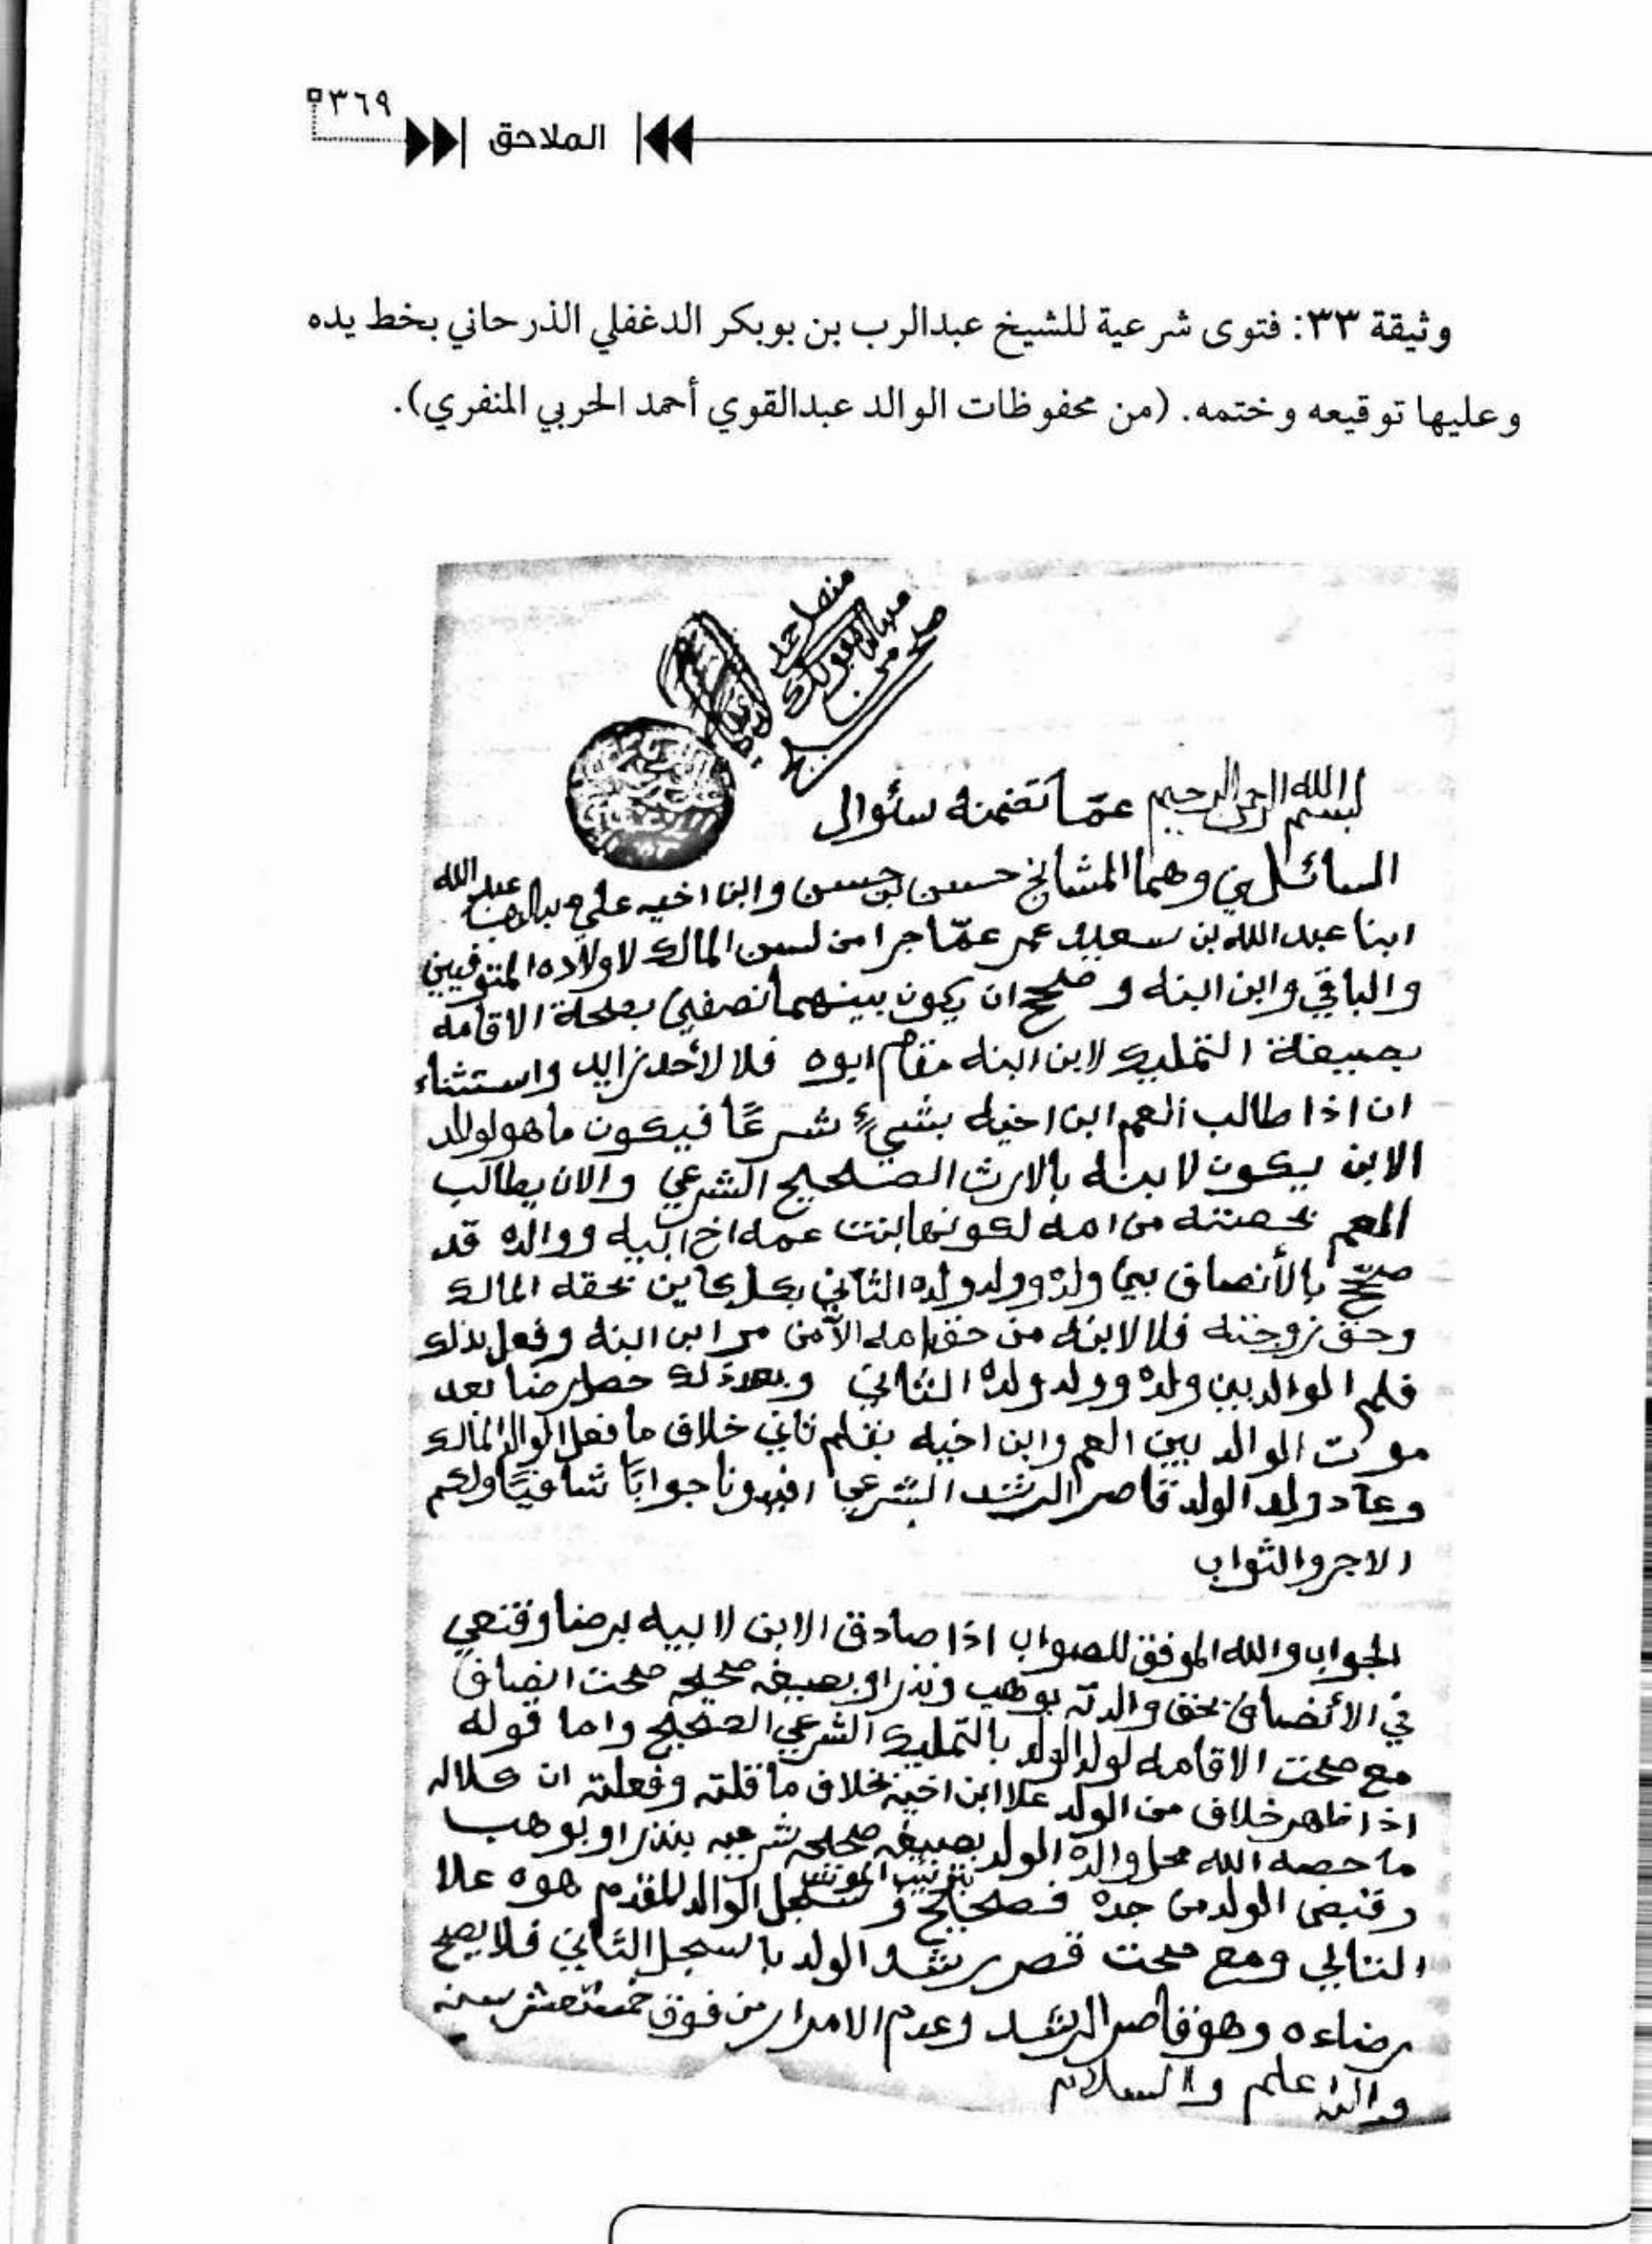 ٣٦٩
الملاحق
وثيقة ٣٣: فتوى شرعية للشيخ عبدالرب بن بوبكر الدغفلي الذرحاني بخط يده
وعليها توقيعه وختمه. (من محفوظات الوالد عبدالقوي أحمد الحربي المنفري).
صح من
بسم الله الرحمن الرحيم عمّا تضمنه سئوال
السائلين وهما المشائخ حسين بن حسن وابنا اخيه علي عبدالله
ابنا عبدالله بن سعيد عمر عمّا جرا من لسن المالك لاولاده المتوفيين
والباقي وابن ابنه وصلح ان يكون بينهما نصفين بصلحة الاقامه
بصيغة التمليك لابن ابنه مقام ابوه فلا لأحد زايد واستثناء
ان اذا طالب العم ابن اخيه بشيءٍ شرعًا فيكون ما هو لولد
الابن يكون لابنه بالارث الصحيح الشرعي والان يطالب
العم بحصته من امه لكونها بنت عمه اخ ابيه ووالده قد
صحّح بالأنصاف بين ولده وولد ولده الثاني بحقه المالك
وحق زوجته فلا لابنه من حق امه الآمن ابن ابنه وفعل بذلك
قلم الوالد بين ولده وولد ولده الثاني وبعد ذلك حصل رضا بعد
موت الوالد بين العم وابن اخيه بقلم ثاني خلاف ما فعل الوالد المالك
وعاد ولد الولد قاصر الرشد الشرعي افيدونا جوابًا شافيًا ولكم
الاجر والثواب
الجواب والله الموفق للصواب اذا صادق الابن لابيه برضا وقنعي
في الأنصاف بحق والدته بوهب ونذر او بصيغه صحيحه صحت انصاف
مع صحت الاقامه لولد الولد بالتمليك الشرعي الصحيح واما قوله
اذا ظهر خلاف من الولد علا ابن اخيه بخلاف ما قلته وفعلته ان
ما خصه الله محل والدة الولد بصيغه صحيحه شرعيه بنذر او بوهب
وقبض الولد من جده فصحيح و سجل الوالد المقدم هوه علا
التالي ومع صحت قصر رشد الولد بالسجل الثاني فلا يصح
رضاءه وهو قاصر الرشد وعدم من فوق خمستعشر سنه
والله اعلم والسلام